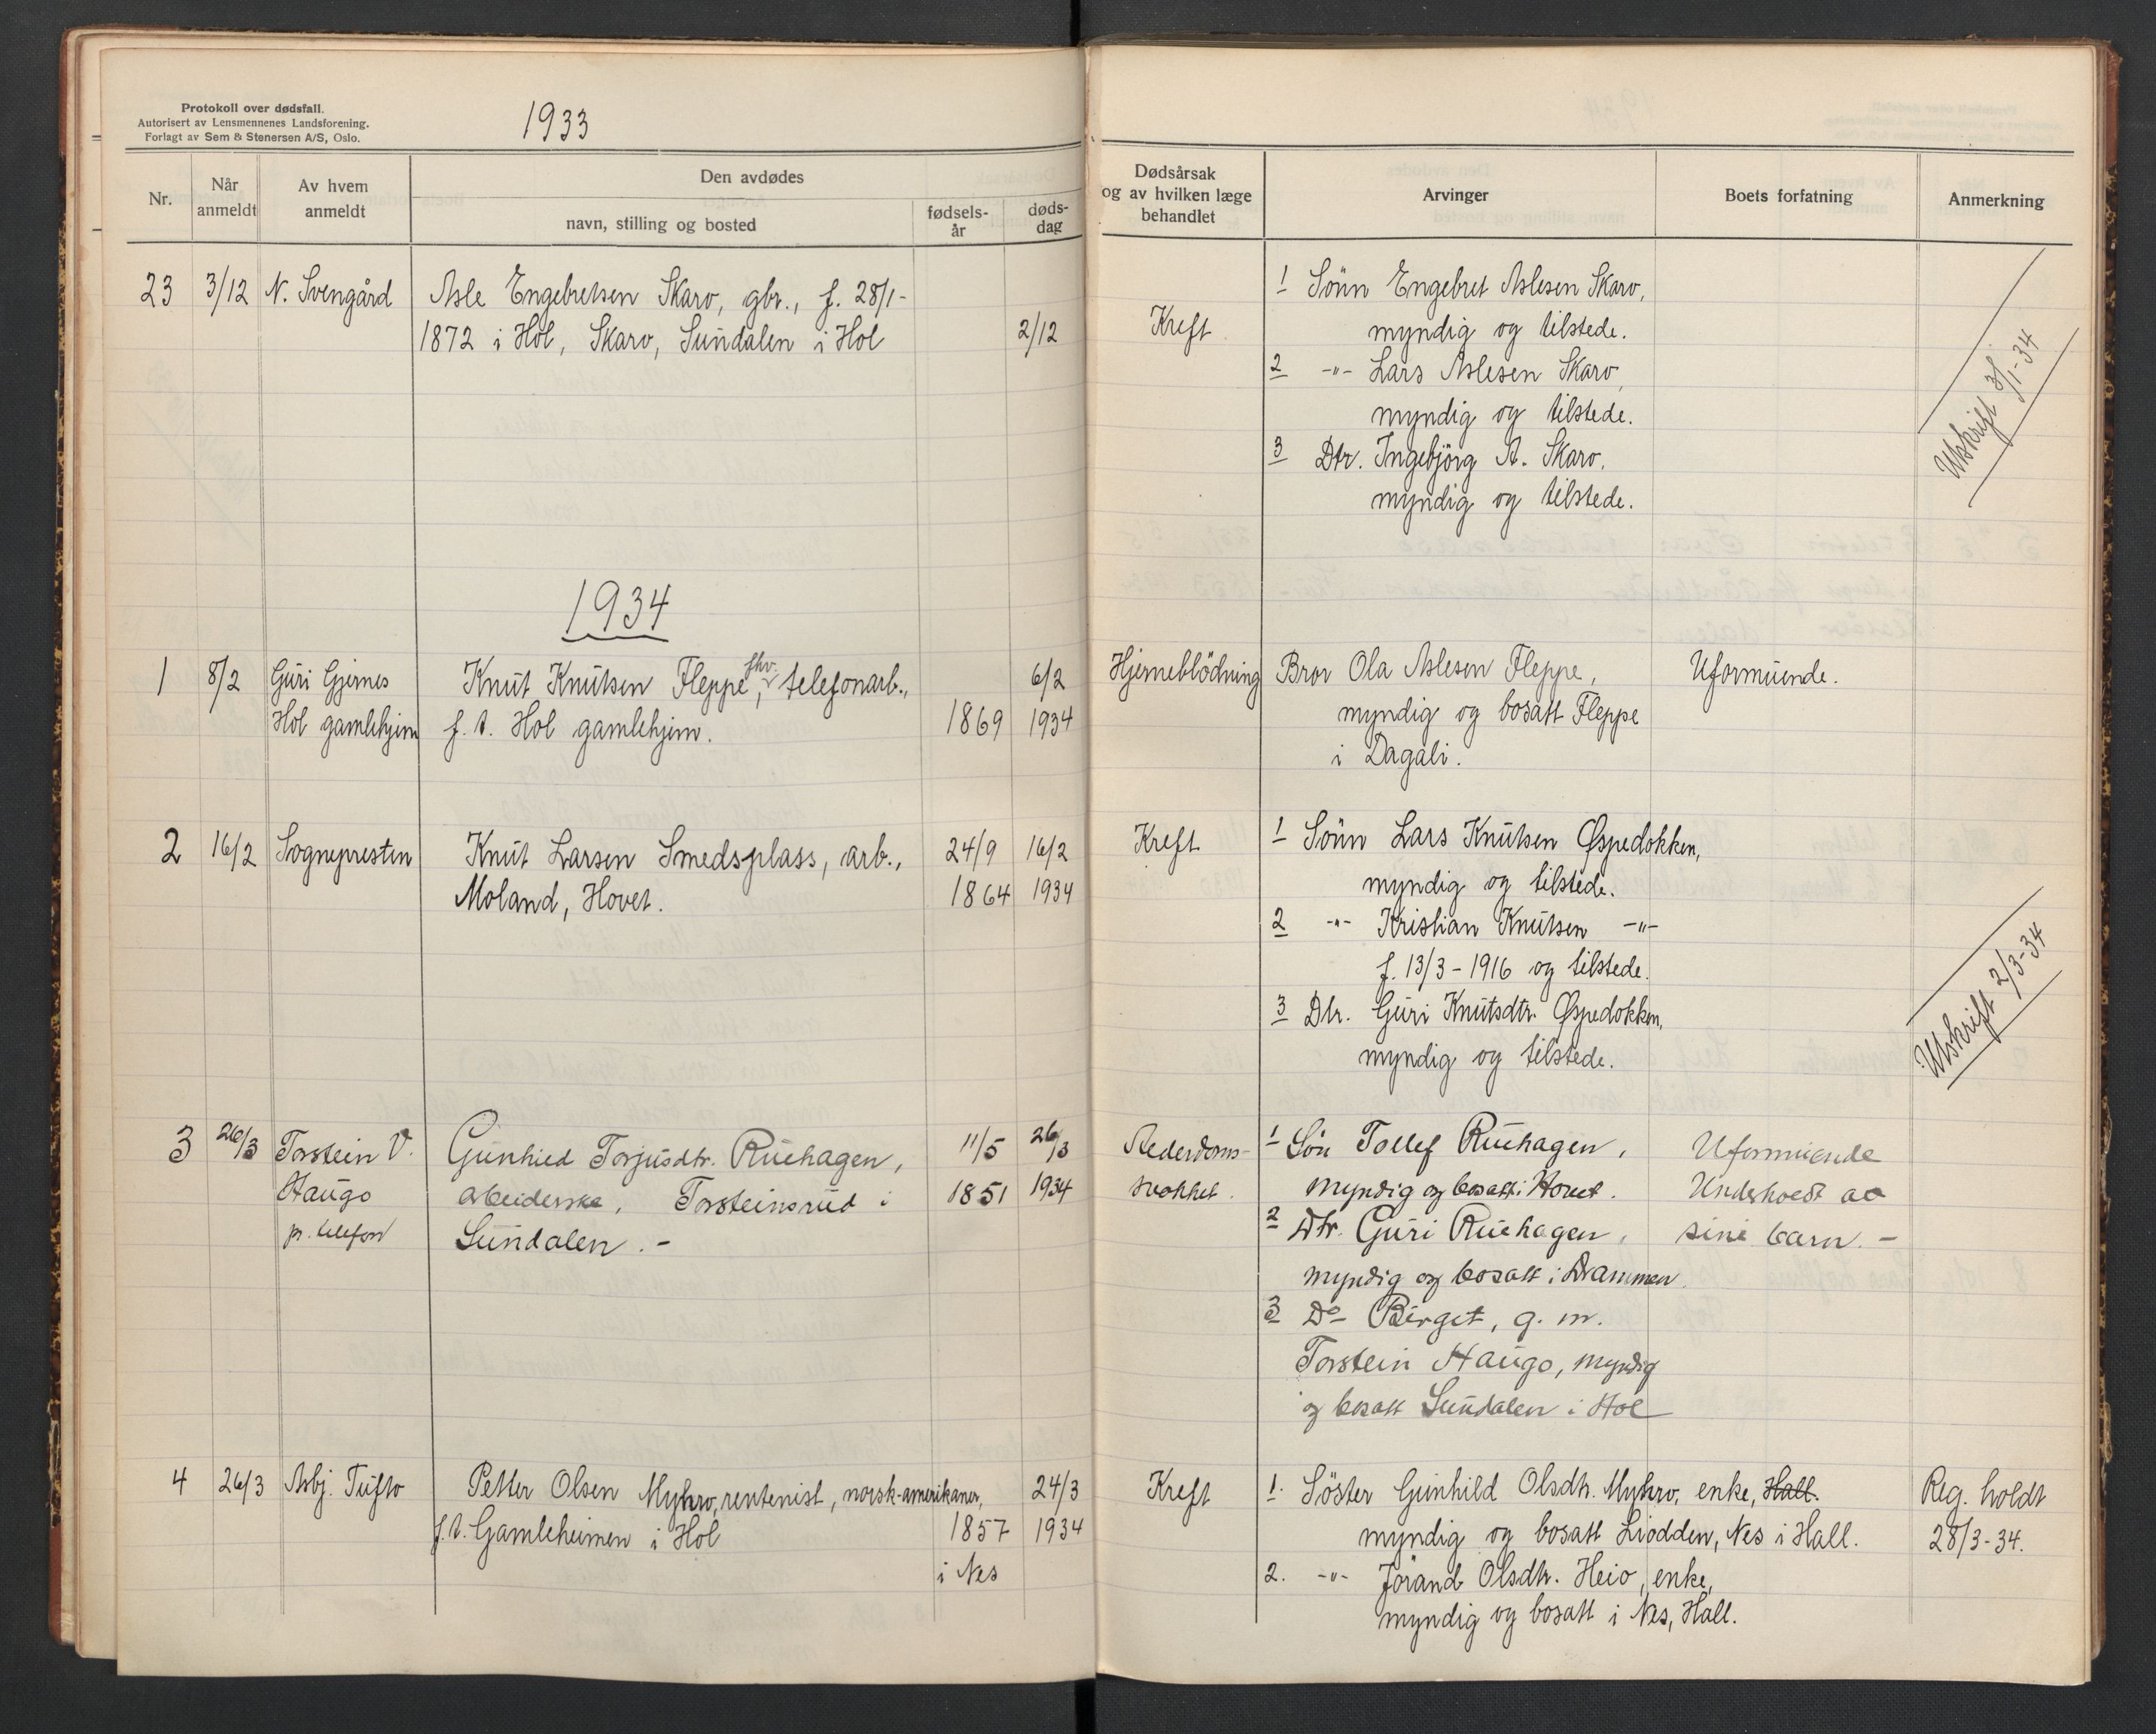 Protokoll over dødsfall.
Autorisert av Lensmennenes Landsforening.
Forlagt av Sem & Stenersen A/S, Oslo.
1933
Nr.
Når anmeldt
Av hvem anmeldt
Den avdødes
navn, stilling og bosted
fødsels-år
døds-dag
Dødsårsak og av hvilken læge behandlet
Arvinger
Boets forfatning
Anmerkning
23 3/12 N. Svengård
Asle Engebretsen Skaro, gbr., f. 28/1-
1872 i Hol, Skaro, Sundalen i Hol
2/12
Kreft
1 Sönn Engebret Aslesen Skaro,
myndig og tilstede.
2 -"- Lars Aslesen Skaro,
myndig og tilstede.
3 Dtr. Ingebjörg A. Skaro,
myndig og tilstede.
Utskrift 3/1-34
1934
1 8/2 Guri Gjernes
Hol gamlehjem
Knut Knutsen Fleppe, fhv. telefonarb.,
f.t. Hol gamlehjem.
1869
6/2
1934
Hjerneblödning
Bror Ola Aslesen Fleppe,
myndig og bosatt Fleppe
i Dagali.
Uformuende.
2 16/2 Sognepresten
Knut Larsen Smedsplass, arb.,
Moland, Hovet.
24/9
1864
16/2
1934
Kreft
1 Sönn Lars Knutsen Øspedokken,
myndig og tilstede.
2 -"- Kristian Knutsen -"-
f. 13/3-1916 og tilstede.
3 Dtr. Guri Knutsdtr. Øspedokken,
myndig og tilstede.
Utskrift 2/3-34
3 26/3 Torstein V.
Haugo
pr. telefon
Gunhild Torjusdtr. Ruehagen,
arbeiderske, Torsteinsrud i
Sundalen.-
11/5
1851
26/3
1934
Alderdoms-
svakhet.
1 Sön Tollef Ruehagen,
myndig og bosatt i Hovet.
2 Dtr. Guri Ruehagen,
myndig og bosatt i Drammen.
3 Do Birget, g. m.
Torstein Haugo, myndig
og bosatt Sundalen i Hol
Uformuende
Underholdt av
sine barn.-
4 26/3 Asbj. Tufto
Petter Olsen Myhro, rentenist, norsk-amerikaner,
f.t. Gamleheimen i Hol
1857
i Nes
24/3
1934
Kreft
1. Söster Gunhild Olsdtr. Myhro, enke, Hall.
myndig og bosatt Liodden, Nes i Hall.
2. -"- Jörand Olsdtr. Heio, enke,
myndig og bosatt i Nes, Hall.
Reg. holdt
28/3-34.